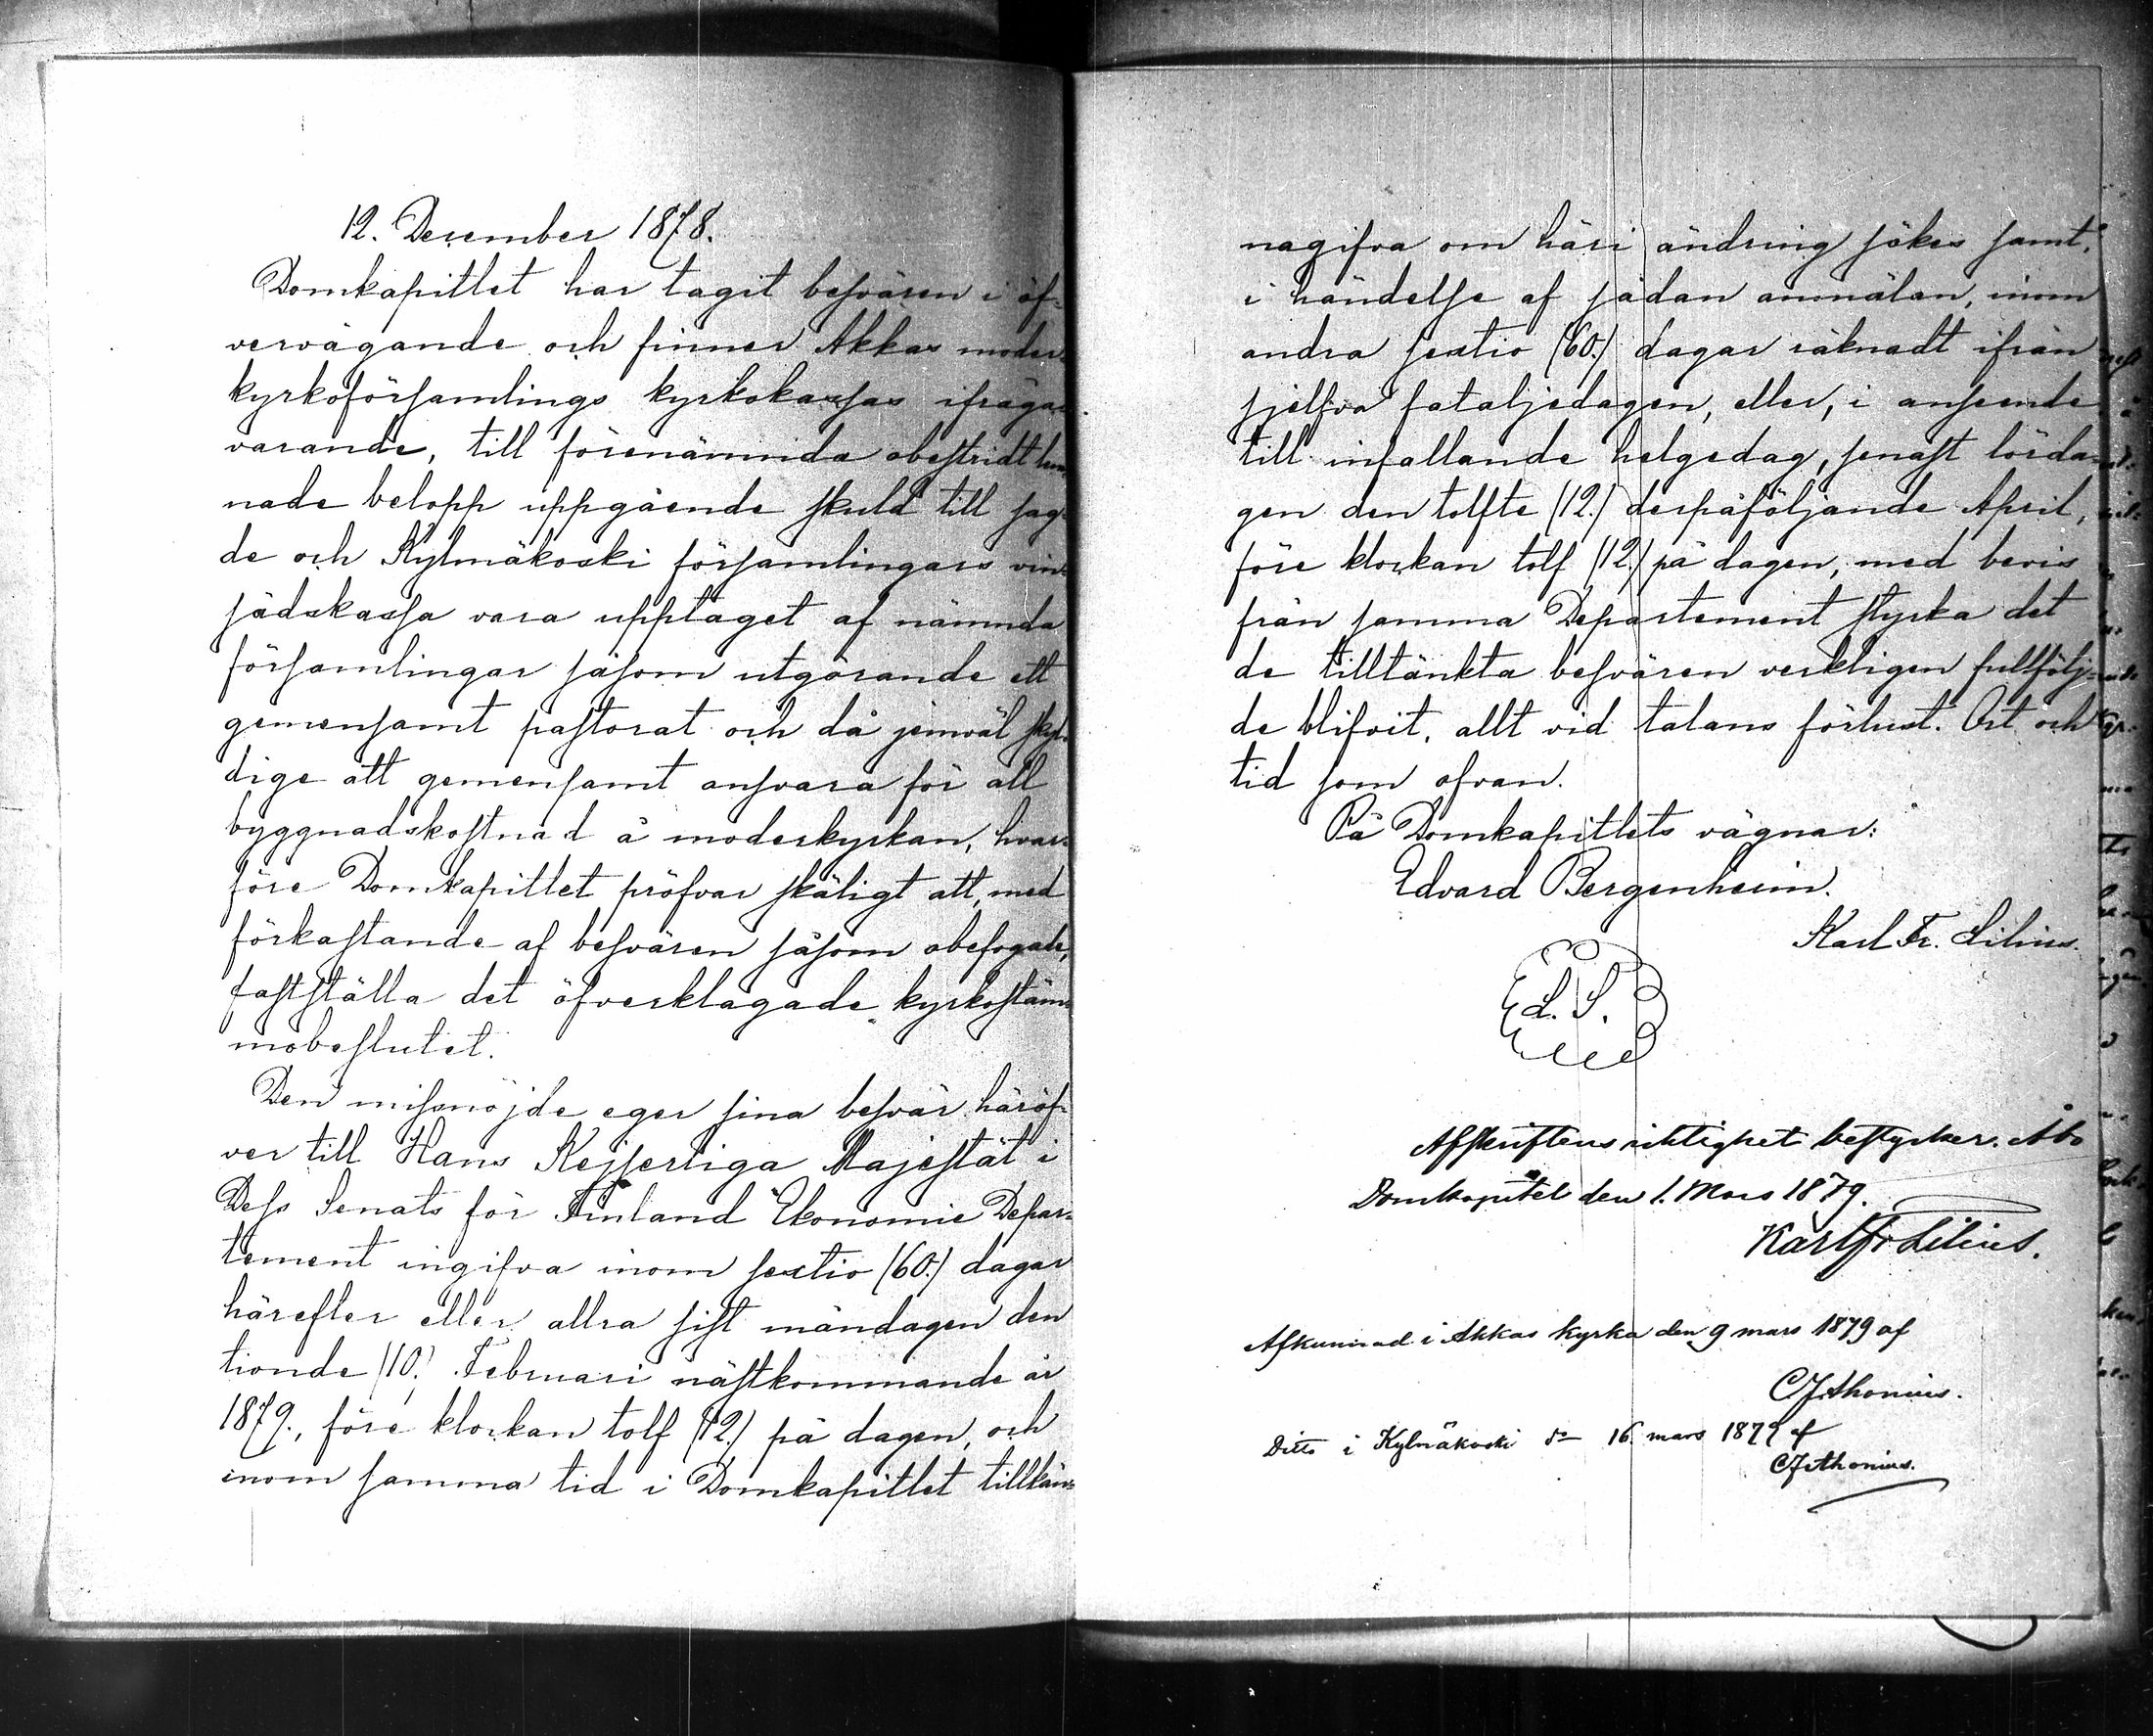 12. December 1878.
Domkapitlet har tagit besvären i öf-
vervägande och finner Akkas moder-
kyrkoförsamlings kyrkokassas ifråga-
varande, till förenämnda obestridt lem-
nade belopp uppgående skuld till sag-
de och Kylmäkoski församlingars vin-
sädskassa vara upptaget af nämnda
församlingar såsom utgörande ett
gemensamt pastorat och då jemväl skyl-
dige att gemensamt ansvara för all
byggnadskostnad å moderkyrkan, hvar-
före Domkapitlet pröfvar skäligt att, med
förkastande af besvären såsom obefogade,
fastställa det öfverklagade kyrkostäm-
mobeslutet.
Den missnöjde eger sina besvär häröf-
ver till Hans Kejserliga Majestät i
Dess Senats för Finland Ekonomie Depar-
tement ingifva inom sextio (60.) dagar
härefter eller allra sist måndagen den
tionde (10.) Februari nästkommande år
1879., före klockan tolf (12.) på dagen, och
inom samma tid i Domkapitlet tillkän-
nagifva om häri ändring sökes samt,
i händelse af sådan anmälan, inom
andra sextio (60.) dagar räknadt ifrån
sjelfva fataljedagen, eller, i anseende
till infallande helgedag, senast lörda-
gen den tolfte (12.) derpåföljande April,
före klockan tolf (12.) på dagen, med bevis
från samma Departement styrka det
de tilltänkta besvären verkligen fullfölj-
de blifvit, allt vid talans förlust. Ort och
tid som ofvan.
På Domkapitlets vägnar:
Edvard Bergenheim.
Karl Fr. Lilius.
L. S.
Afskriftens riktighet bestyrker. Åbo
Domkapitel den 1. Mars 1879.
Karl Fr Lilius.
Afkunnad i Akkas kyrka den 9 mars 1879 af
CJAthonius.
Ditto i Kylmäkoski d:o 16. mars 1879 af
CJAthonius.